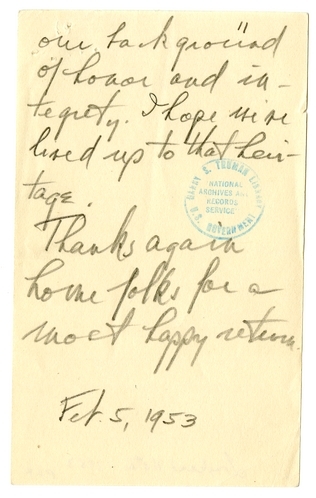 our background
of honor and in-
tegrety. I hope we've
lived up to that heri-
tage.
HARRY S. TRUMAN LIBRARY
NATIONAL
ARCHIVES AND
RECORDS
SERVICE
U.S. GOVERNMENT
Thanks again
home folks for a
most happy return.
Feb. 5, 1953